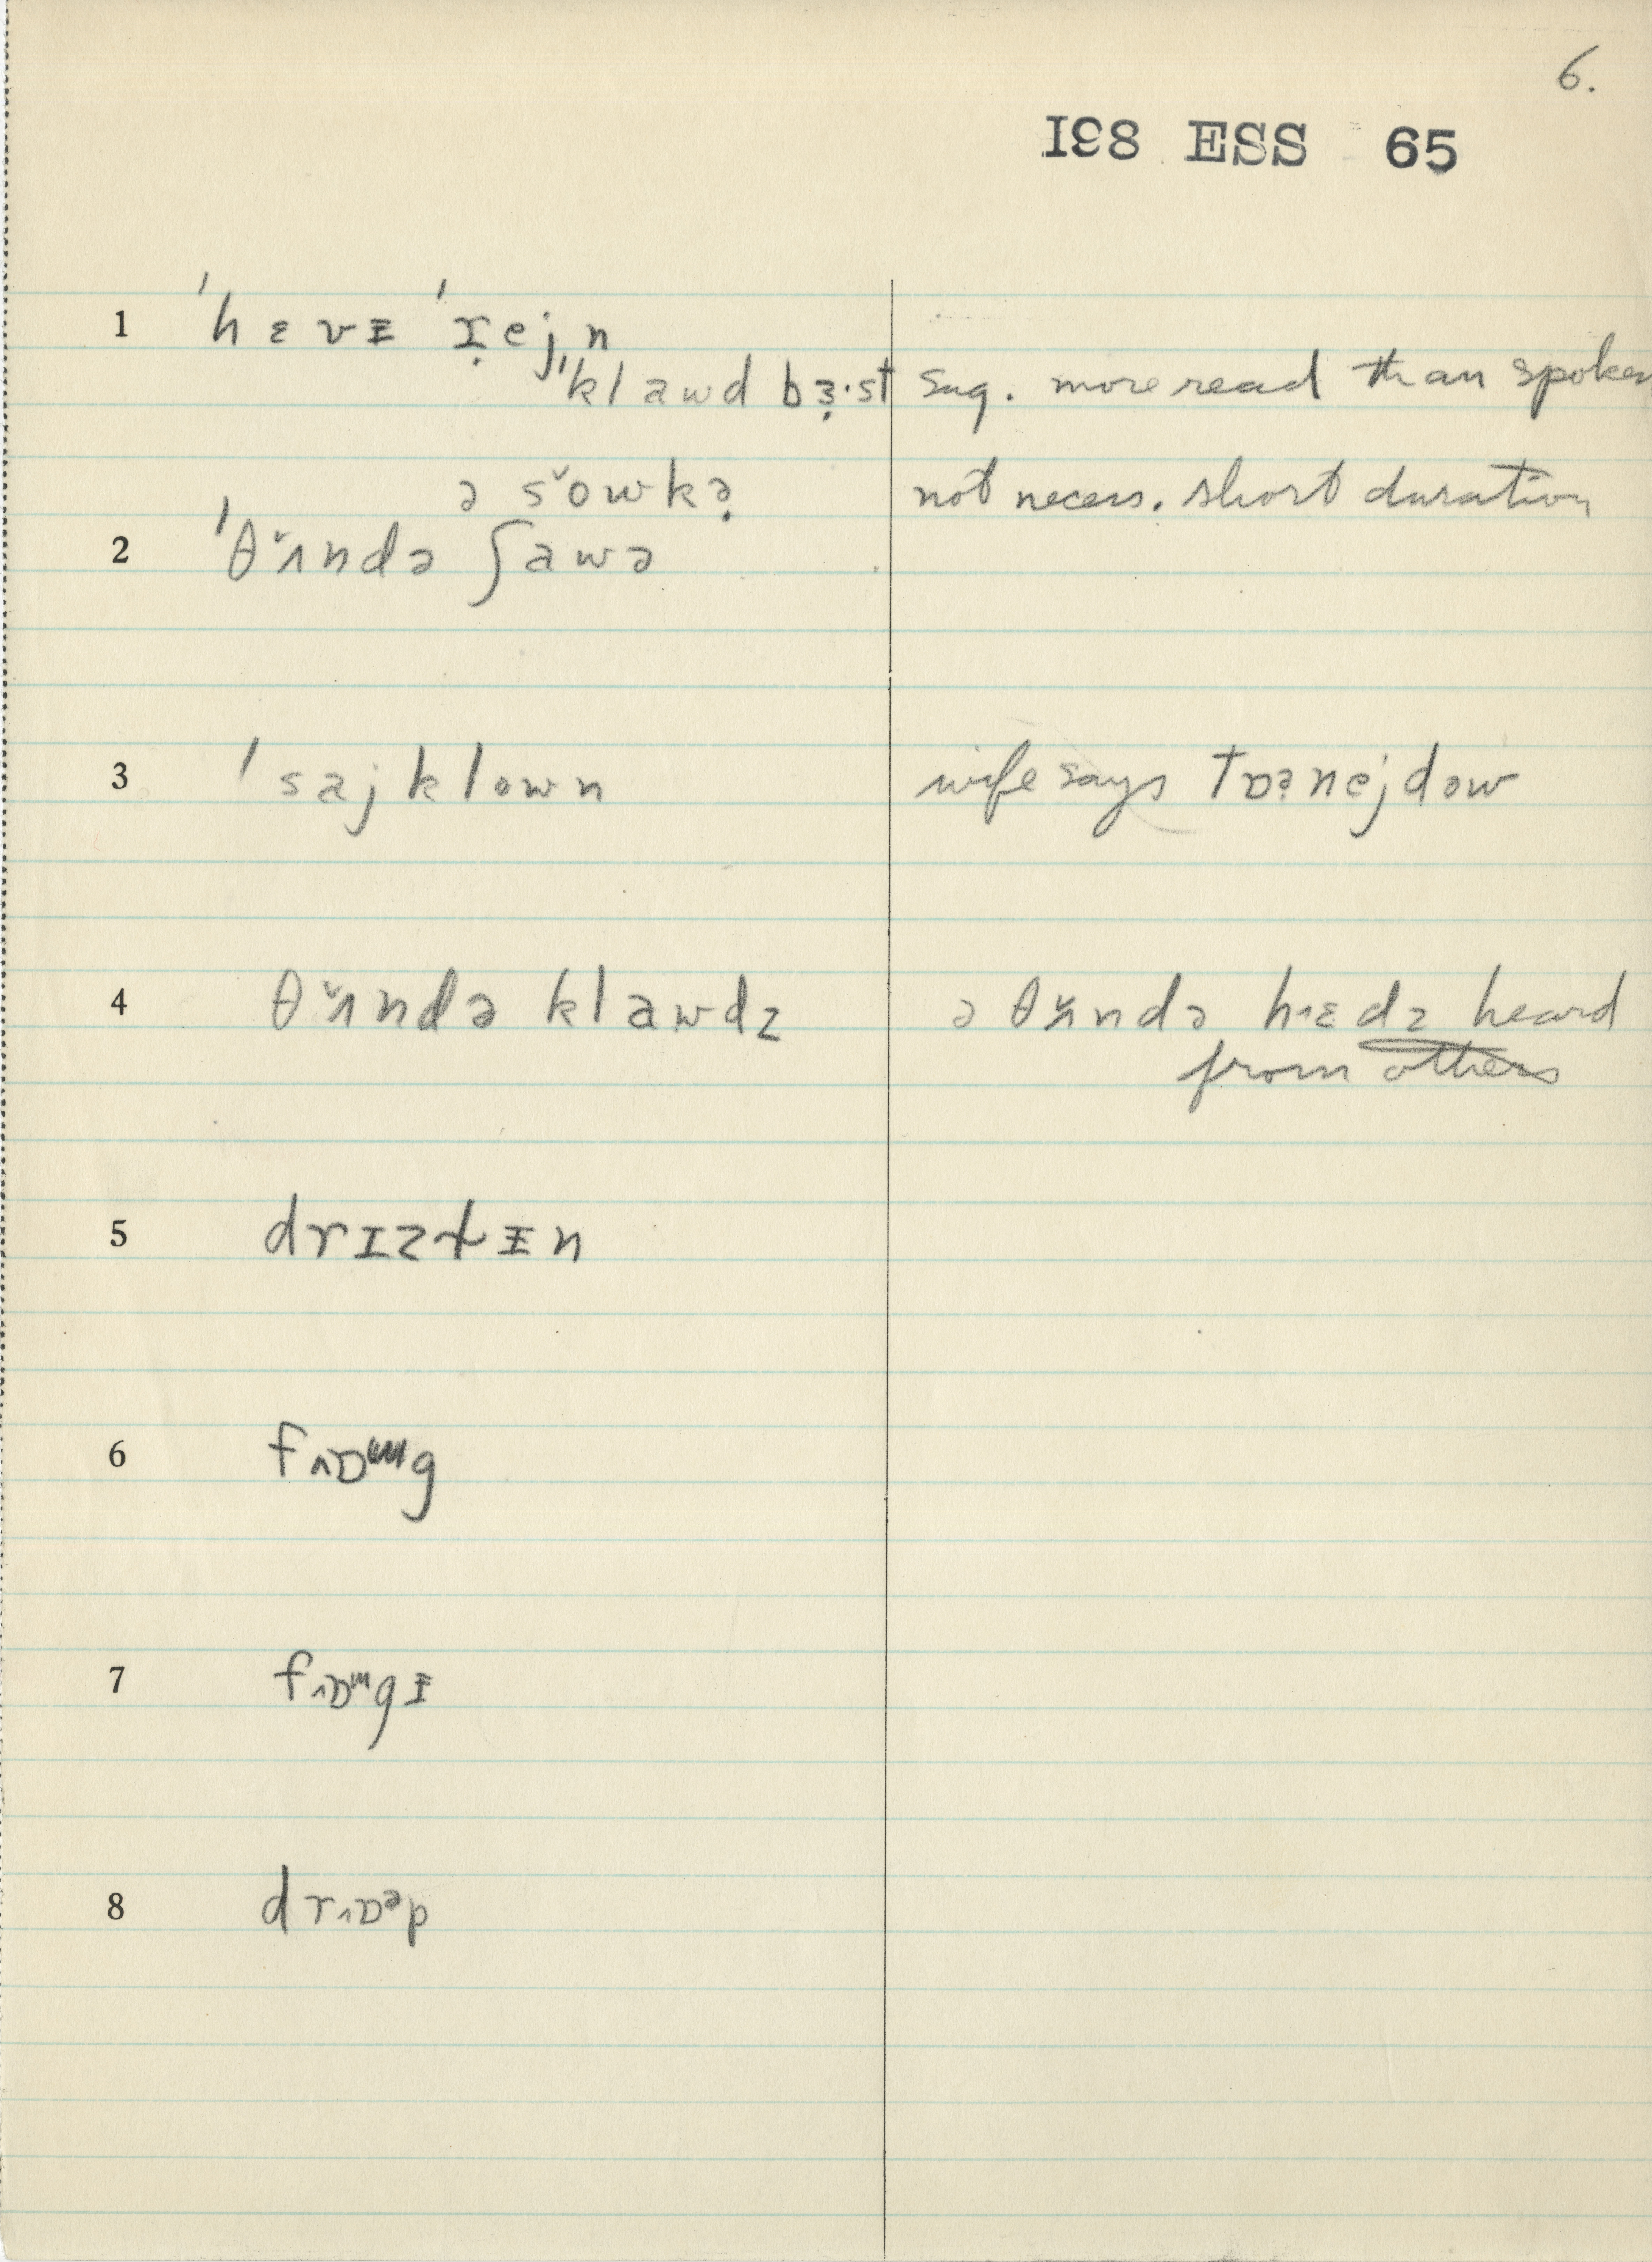 6.
IƐ8 ESS 65
1 ˈhɛvɪ̵ ˈɪ̣ejn
ˈklawd bɜ̣·st sug. more read than spoken
ə sˇowkə̣ not necess. short duration
2 ˈθˇʌndə ʃawə
3 ˈsajklown wife says tɒə̣nejdəw
4 θˇʌndə klawdz ə θˇʌndə hɛdz heard
from others
5 drɪzɫɪ̵n
6 fɒᵚg
7 fɒᵚgɪ̵
8 drɒᵊp